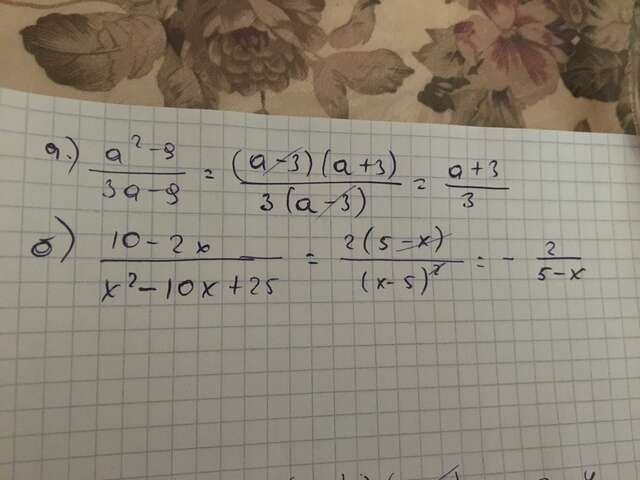 а.) a² - 9 / 3a - 9 = (a-3)(a+3) / 3(a-3) = a+3 / 3
б) 10 - 2x / x² - 10x + 25 = 2(5-x) / (x-5)² = - 2 / 5-x